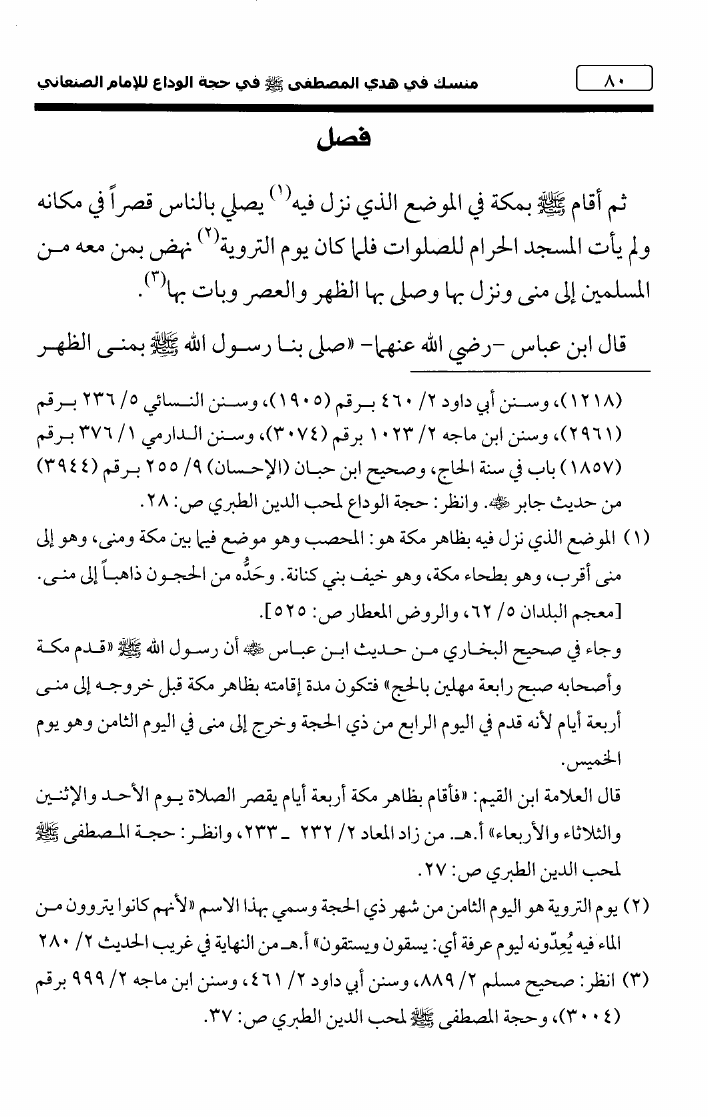 ٨٠
منسك في هدي المصطفى ﷺ في حجة الوداع للإمام الصنعاني
فصل
ثم أقام ﷺ بمكة في الموضع الذي نزل فيه(١) يصلي بالناس قصراً في مكانه
ولم يأت المسجد الحرام للصلوات فلما كان يوم التروية(٢) نهض بمن معه من
المسلمين إلى منى ونزل بها وصلى بها الظهر والعصر وبات بها(٣).
قال ابن عباس -رضي الله عنهما- «صلى بنا رسول الله ﷺ بمنى الظهر
(١٢١٨)، وسنن أبي داود ٢/ ٤٦٠ برقم (١٩٠٥)، وسنن النسائي ٥/ ٢٣٦ برقم
(٢٩٦١)، وسنن ابن ماجه ٢/ ١٠٢٣ برقم (٣٠٧٤)، وسنن الدارمي ١/ ٣٧٦ برقم
(١٨٥٧) باب في سنة الحاج، وصحيح ابن حبان (الإحسان) ٩/ ٢٥٥ برقم (٣٩٤٤)
من حديث جابر ﵁. وانظر: حجة الوداع لمحب الدين الطبري ص: ٢٨.
(١) الموضع الذي نزل فيه بظاهر مكة هو: المحصب وهو موضع فيما بين مكة ومنى، وهو إلى
منى أقرب، وهو بطحاء مكة، وهو خيف بني كنانة. وحَدُّه من الحجون ذاهباً إلى منى.
[معجم البلدان ٥/ ٦٢، والروض المعطار ص: ٥٢٥].
وجاء في صحيح البخاري من حديث ابن عباس ﵁ أن رسول الله ﷺ «قدم مكة
وأصحابه صبح رابعة مهلين بالحج» فتكون مدة إقامته بظاهر مكة قبل خروجه إلى منى
أربعة أيام لأنه قدم في اليوم الرابع من ذي الحجة وخرج إلى منى في اليوم الثامن وهو يوم
الخميس.
قال العلامة ابن القيم: «فأقام بظاهر مكة أربعة أيام يقصر الصلاة يوم الأحد والإثنين
والثلاثاء والأربعاء» أ.هـ. من زاد المعاد ٢/ ٢٣٢ - ٢٣٣، وانظر: حجة المصطفى ﷺ
لمحب الدين الطبري ص: ٢٧.
(٢) يوم التروية هو اليوم الثامن من شهر ذي الحجة وسمي بهذا الاسم «لأنهم كانوا يتروون من
الماء فيه يُعِدّونه ليوم عرفة أي: يسقون ويستقون» أ.هـ من النهاية في غريب الحديث ٢/ ٢٨٠
(٣) انظر: صحيح مسلم ٢/ ٨٨٩، وسنن أبي داود ٢/ ٤٦١، وسنن ابن ماجه ٢/ ٩٩٩ برقم
(٣٠٠٤)، وحجة المصطفى ﷺ لمحب الدين الطبري ص: ٣٧.